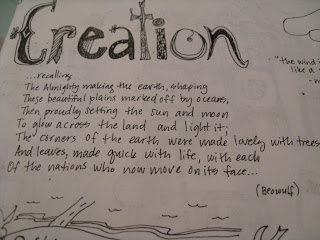 Creation
...recalling
The Almighty making the earth, shaping
These beautiful plains marked off by oceans,
Then proudly setting the sun and moon
To glow across the land and light it;
The corners of the earth were made lovely with trees
And leaves, made quick with life, with each
Of the nations who now move on its face...
(Beowulf)
"the wind i
like a